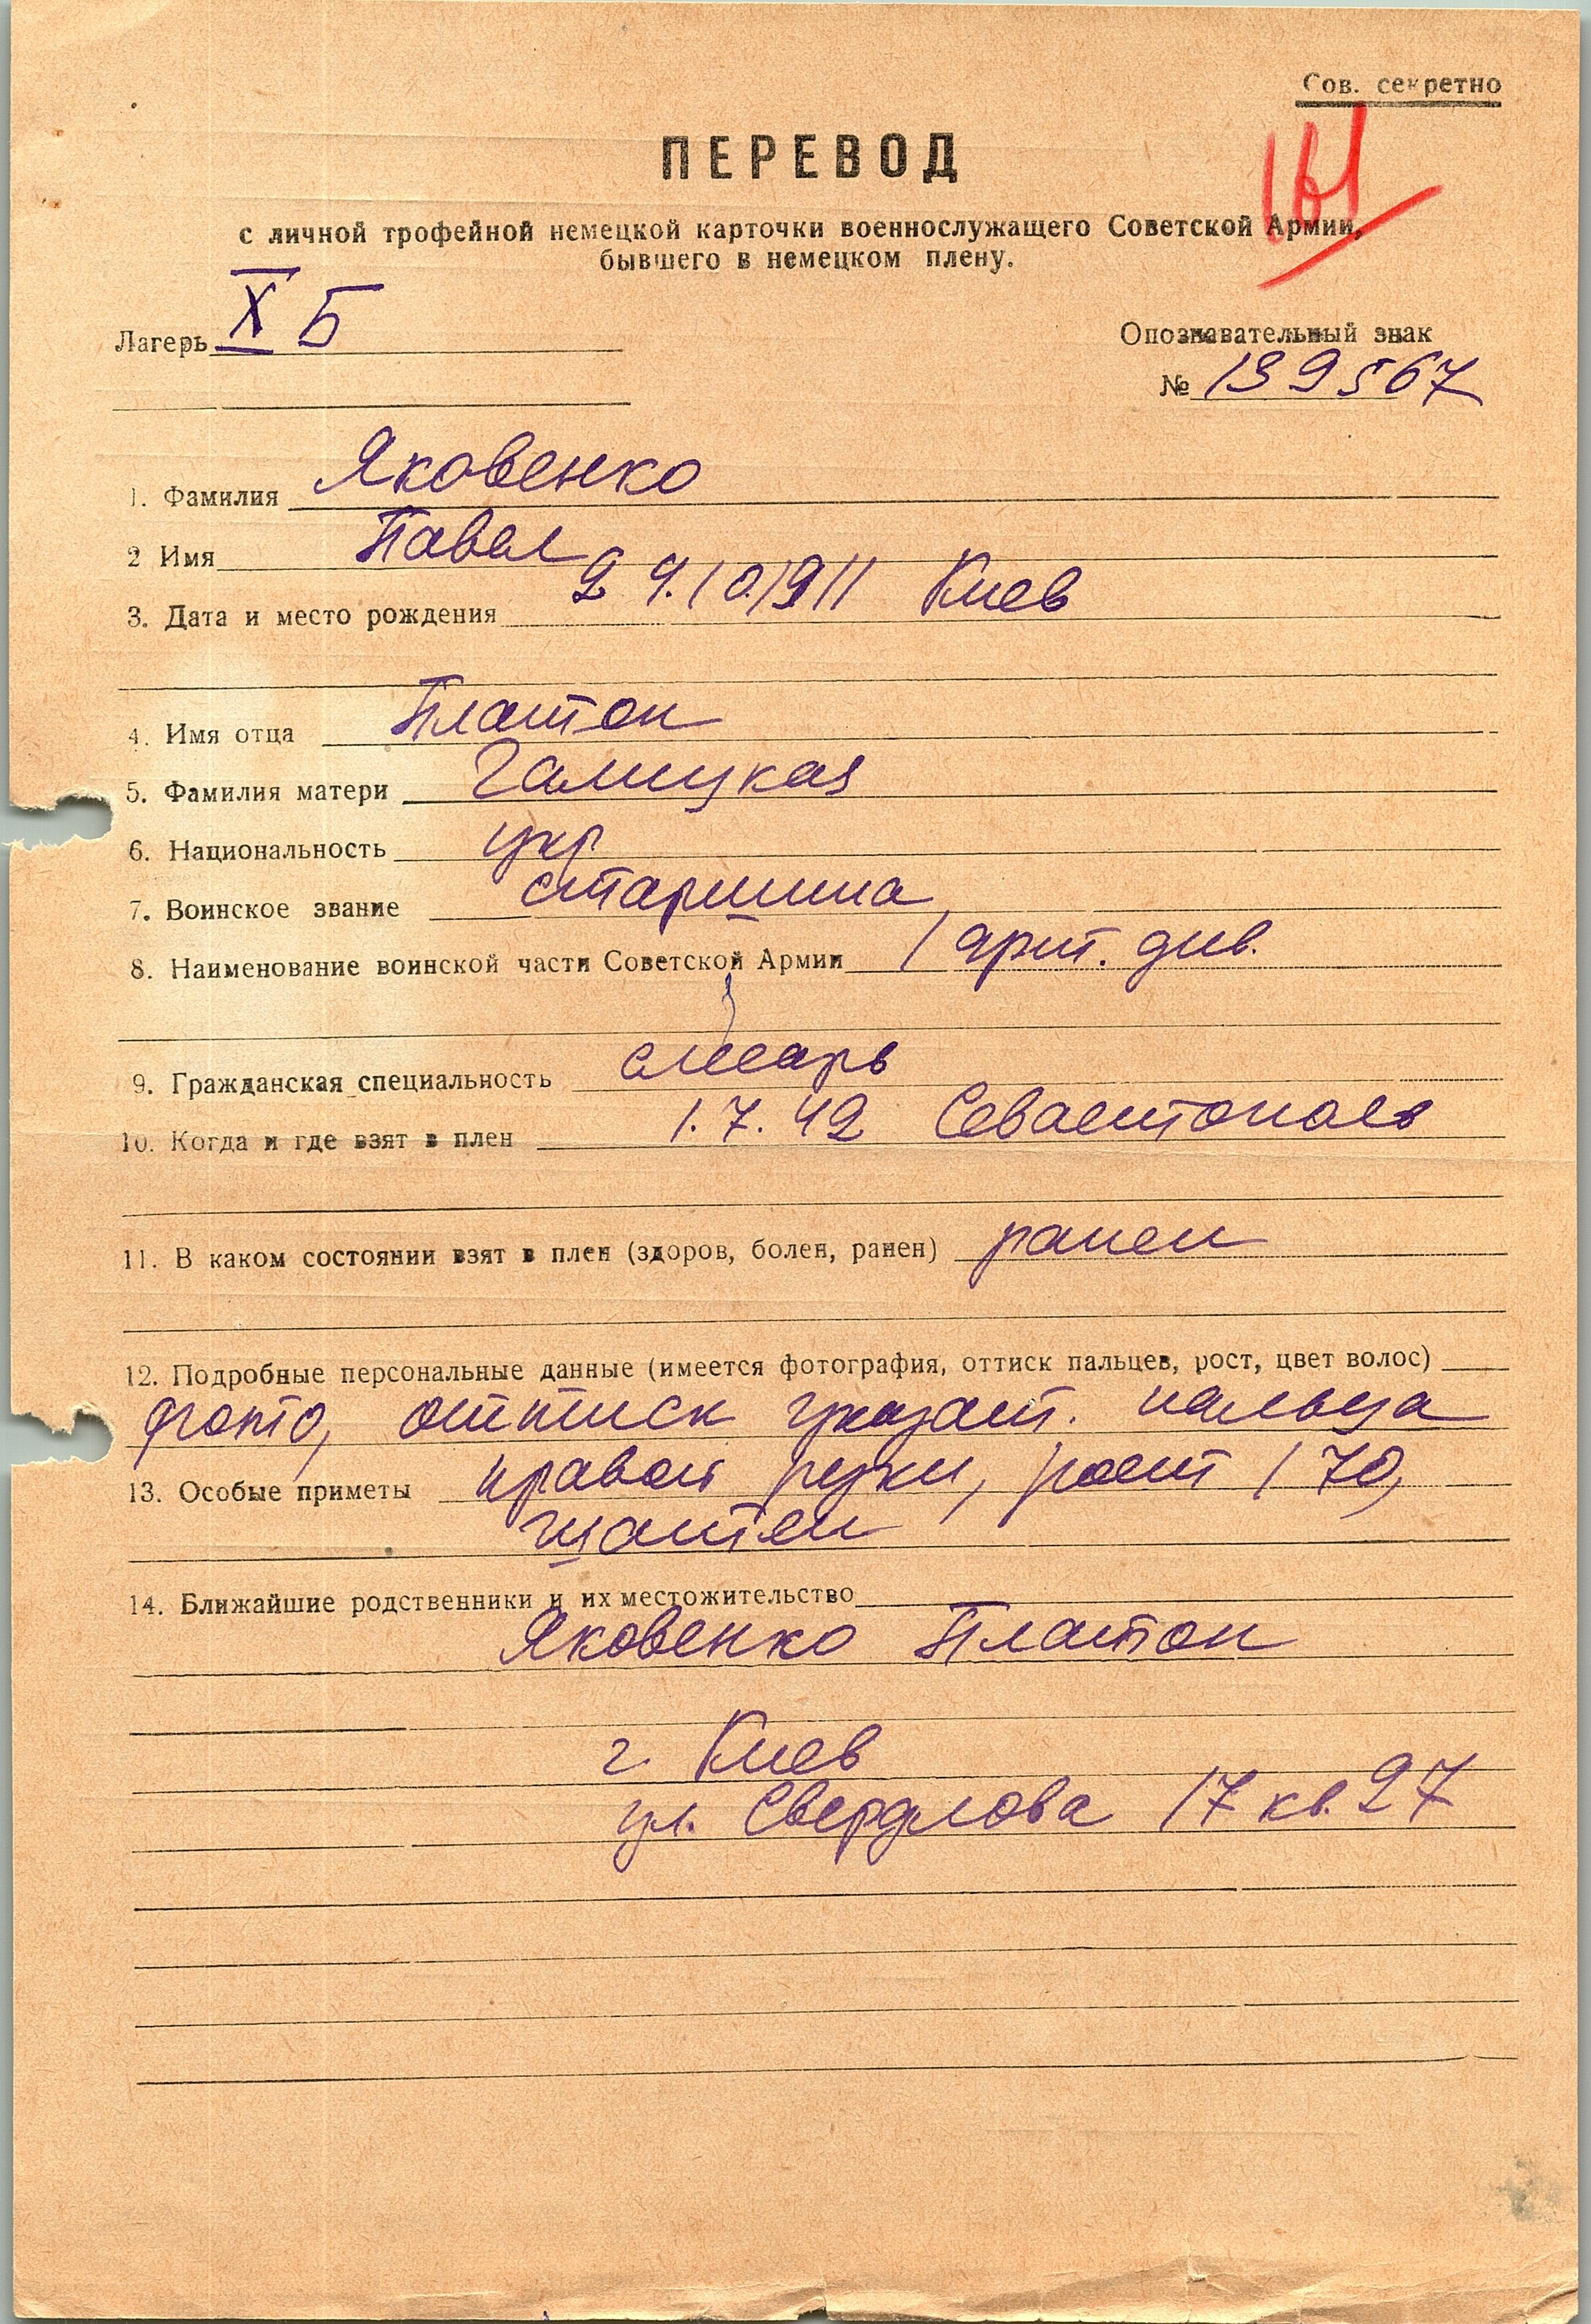 Сов. секретно
ПЕРЕВОД
с личной трофейной немецкой карточки военнослужащего Советской Армии,
бывшего в немецком плену.
Лагерь X Б
Опознавательный знак
№ 139567
1. Фамилия Яковенко
2 Имя Павел
3. Дата и место рождения 29.10.1911 Киев
4. Имя отца Платон
5. Фамилия матери Галицкая
6. Национальность укр
7. Воинское звание старшина
8. Наименование воинской части Советской Армии 1 арт. див.
9. Гражданская специальность слесарь
10. Когда и где взят в плен 1.7.42 Севастополь
11. В каком состоянии взят в плен (здоров, болен, ранен) ранен
12. Подробные персональные данные (имеется фотография, оттиск пальцев, рост, цвет волос)
фото, оттиск указат. пальца
13. Особые приметы правой руки, рост 170,
шатен
14. Ближайшие родственники и их местожительство
Яковенко Платон
г Киев
ул. Свердлова 17 кв. 27